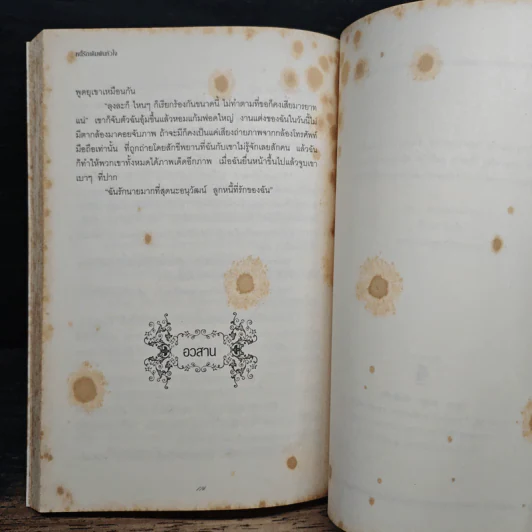 พูดดุเขาเหมือนกัน
"ลุงละก็ ไหนๆ ก็เรียกร้องกันขนาดนี้ ไม่ทำตามที่ขอก็คงเสียมารยาท
แน่" เขาก็จับตัวฉันอุ้มขึ้นแล้วหอมแก้มฟอดใหญ่ งานแต่งของฉันในวันนี้ไม่
มีตากล้องมาคอยจับภาพ ถ้าจะมีก็คงเป็นแค่เสียงถ่ายภาพจากกล้องโทรศัพท์
มือถือเท่านั้น ที่ถูกถ่ายโดยสักขีพยานที่ฉันกับเขาไม่รู้จักเลยสักคน แล้วฉัน
ก็ทำให้พวกเขาทั้งหมดได้ภาพเด็ดอีกภาพ เมื่อฉันยื่นหน้าขึ้นไปแล้วจูบเขา
เบาๆ ที่ปาก
"ฉันรักนายมากที่สุดนะอนุวัฒน์ ลูกหนี้ที่รักของฉัน"
อวสาน